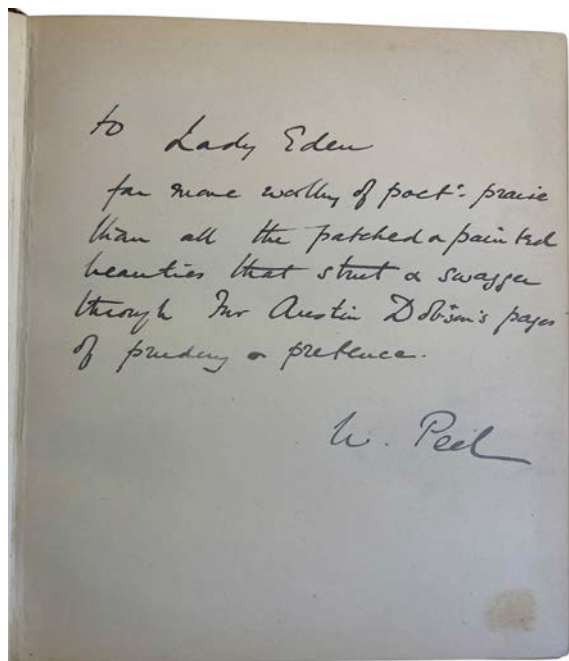 to Lady Eden
far more worthy of poet's praise
than all the patched & painted
beauties that strut & swagger
through Mr Austin Dobson's pages
of prudery & pretence.
W. Peel